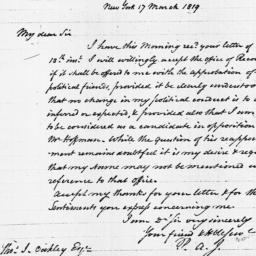 New York 17 March 1819
My dear Sir
I have this Morning recd. your letter of
13th. inst. I will willingly accept the office of Reco
if it shall be offered to me with the approbation of
political friends, provided it be clearly understoo
that no change in my political conduct is to
inferred or expected, & provided also that I am
to be considered as a candidate in opposition
Mr. Hoffman. While the question of his appo
ment remains doubtful it is my desire & requ
that my Name may not be mentioned
reference to that office.
Accept my thanks for your letter & for the
Sentiments you express concerning me.
I am Dr. Sir very sincerely
Your friend
P. A. J.
Thos. J. Oakley Esqr.